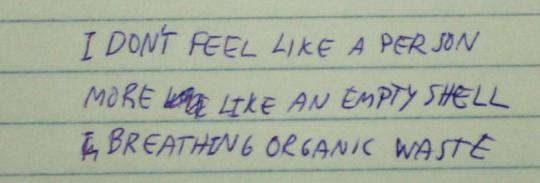 I DON'T FEEL LIKE A PERSON
MORE LIKE AN EMPTY SHELL
BREATHING ORGANIC WASTE